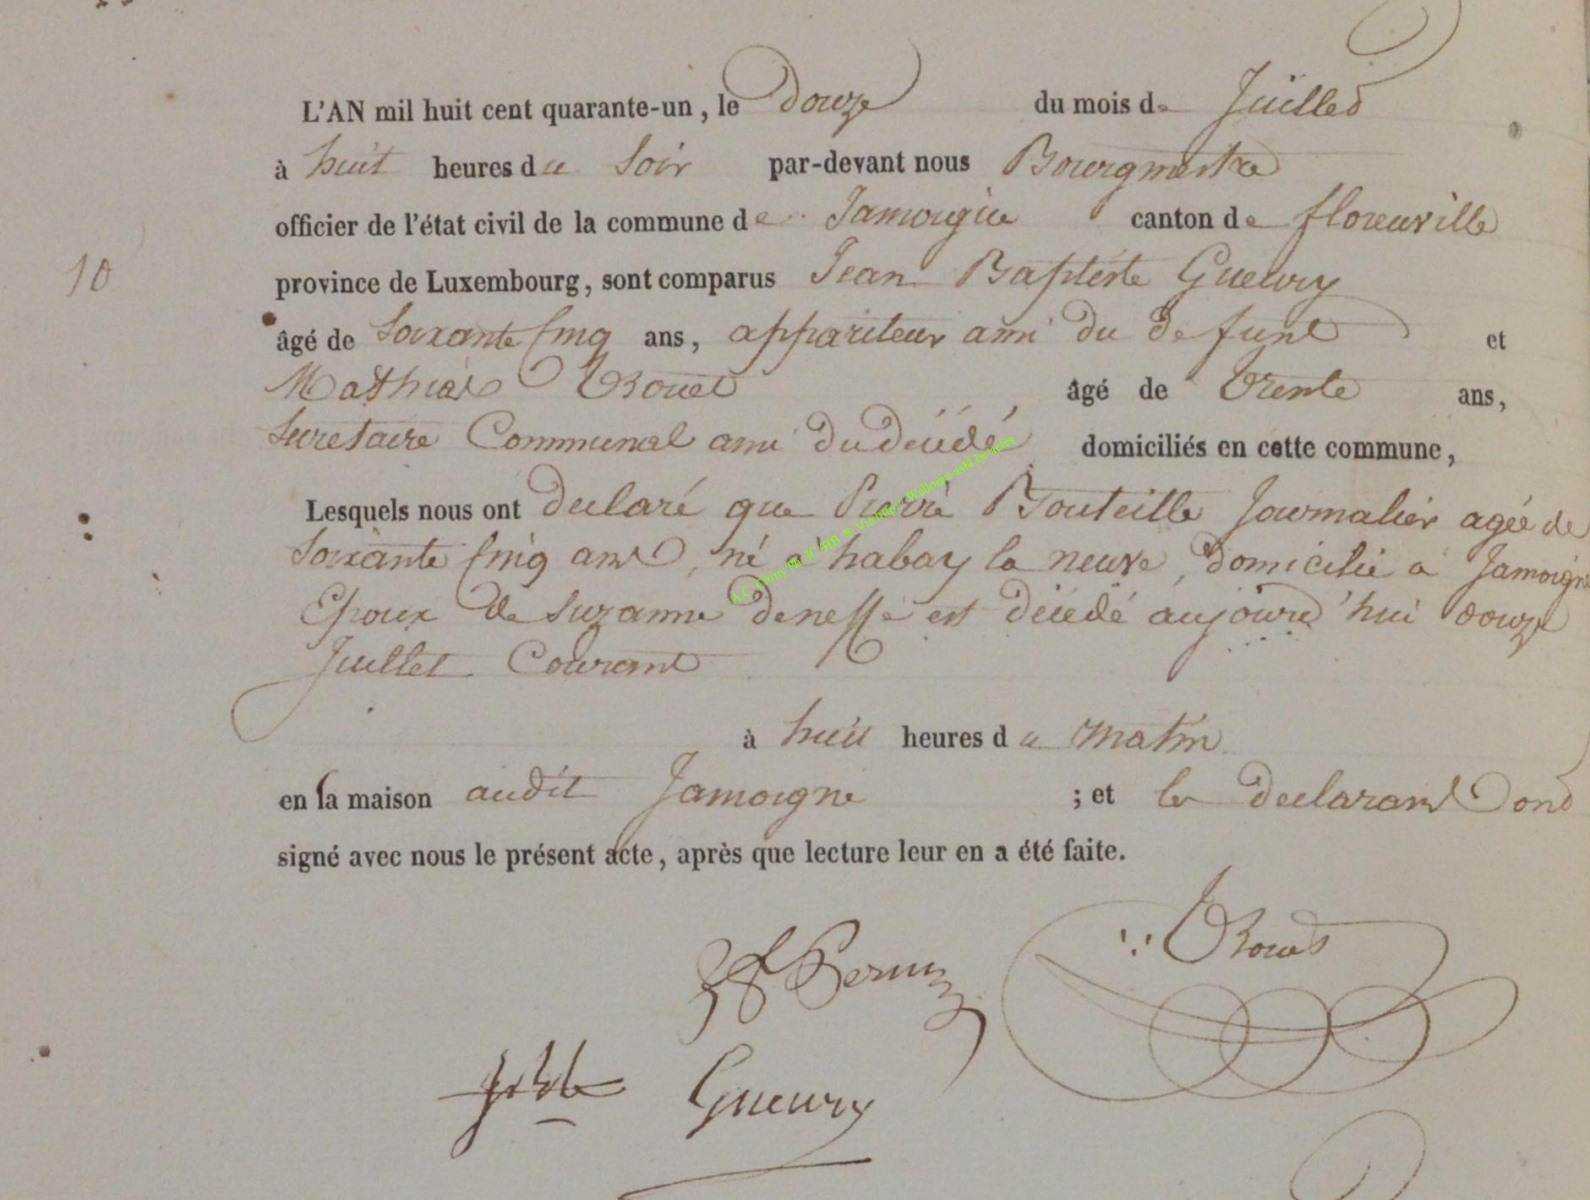 L'AN mil huit cent quarante-un, le douze du mois de Juillet
à huit heures du Soir par-devant nous Bourgmestre
officier de l'état civil de la commune de Jamoigne canton de florenville
10
province de Luxembourg, sont comparus Jean Baptiste Gueury
âgé de Soixante Cinq ans, appariteur ami du defunt et
Mathias âgé de trente ans,
Secretaire Communal ami du décédé domiciliés en cette commune,
Lesquels nous ont declaré que Pierre Bouteille Journalier agée de
Soixante Cinq ans, né a habay la neuve, domicilié a Jamoigne
Epoux de Suzanne Denesse est décédé aujourd'hui douze
Juillet Courant
à huit heures du matin
en la maison audit Jamoigne ; et les declarans ont
signé avec nous le présent acte, après que lecture leur en a été faite.
Gueury